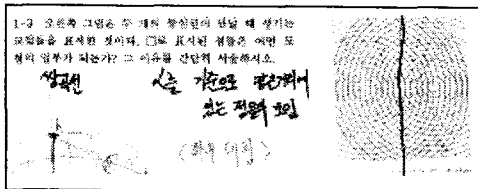 1-3 오른쪽 그림은 두 개의 동심원이 만날 때 생기는
교점들을 표시한 것이다. □로 표시된 점들은 어떤 도
형의 일부가 되는가? 그 이유를 간단히 서술하시오.
쌍곡선
기준으로 같은거리에
있는 점들의 모임